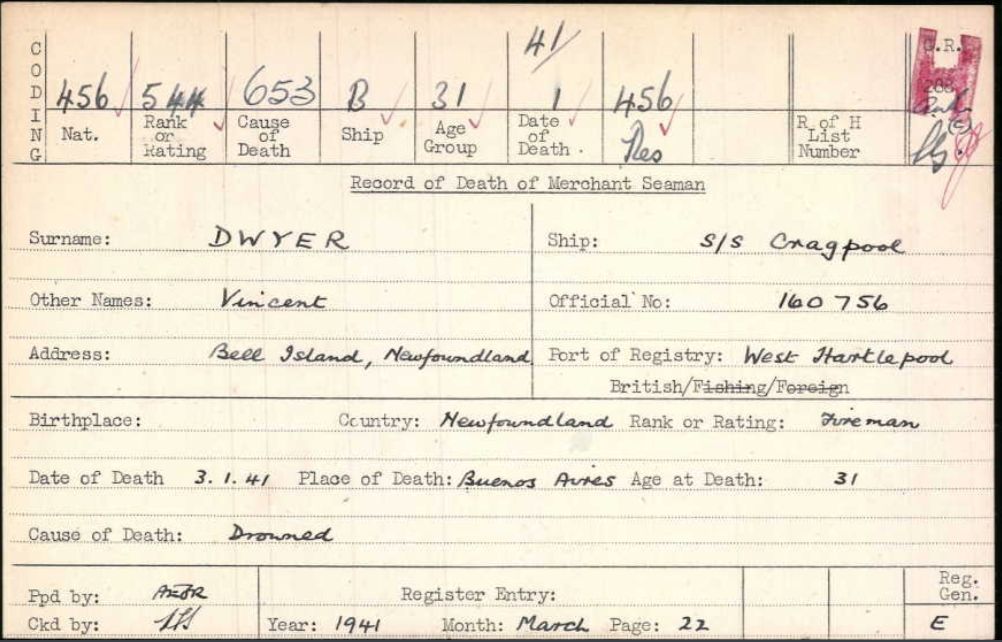 CODING
41/
456 544 653 B 31 1 456
Nat. Rank or Rating Cause of Death Ship Age Group Date of Death. Res R of H List Number
G.R.
208
(c)
Record of Death of Merchant Seaman
Surname: DWYER Ship: S/S Cragpool
Other Names: Vincent Official No: 160756
Address: Bell Island, Newfoundland Port of Registry: West Hartlepool
British/Fishing/Foreign
Birthplace: Country: Newfoundland Rank or Rating: Fireman
Date of Death 3.1.41 Place of Death: Buenos Aires Age at Death: 31
Cause of Death: Drowned
Ppd by: Register Entry: Reg. Gen.
Ckd by: Year: 1941 Month: March Page: 22 E